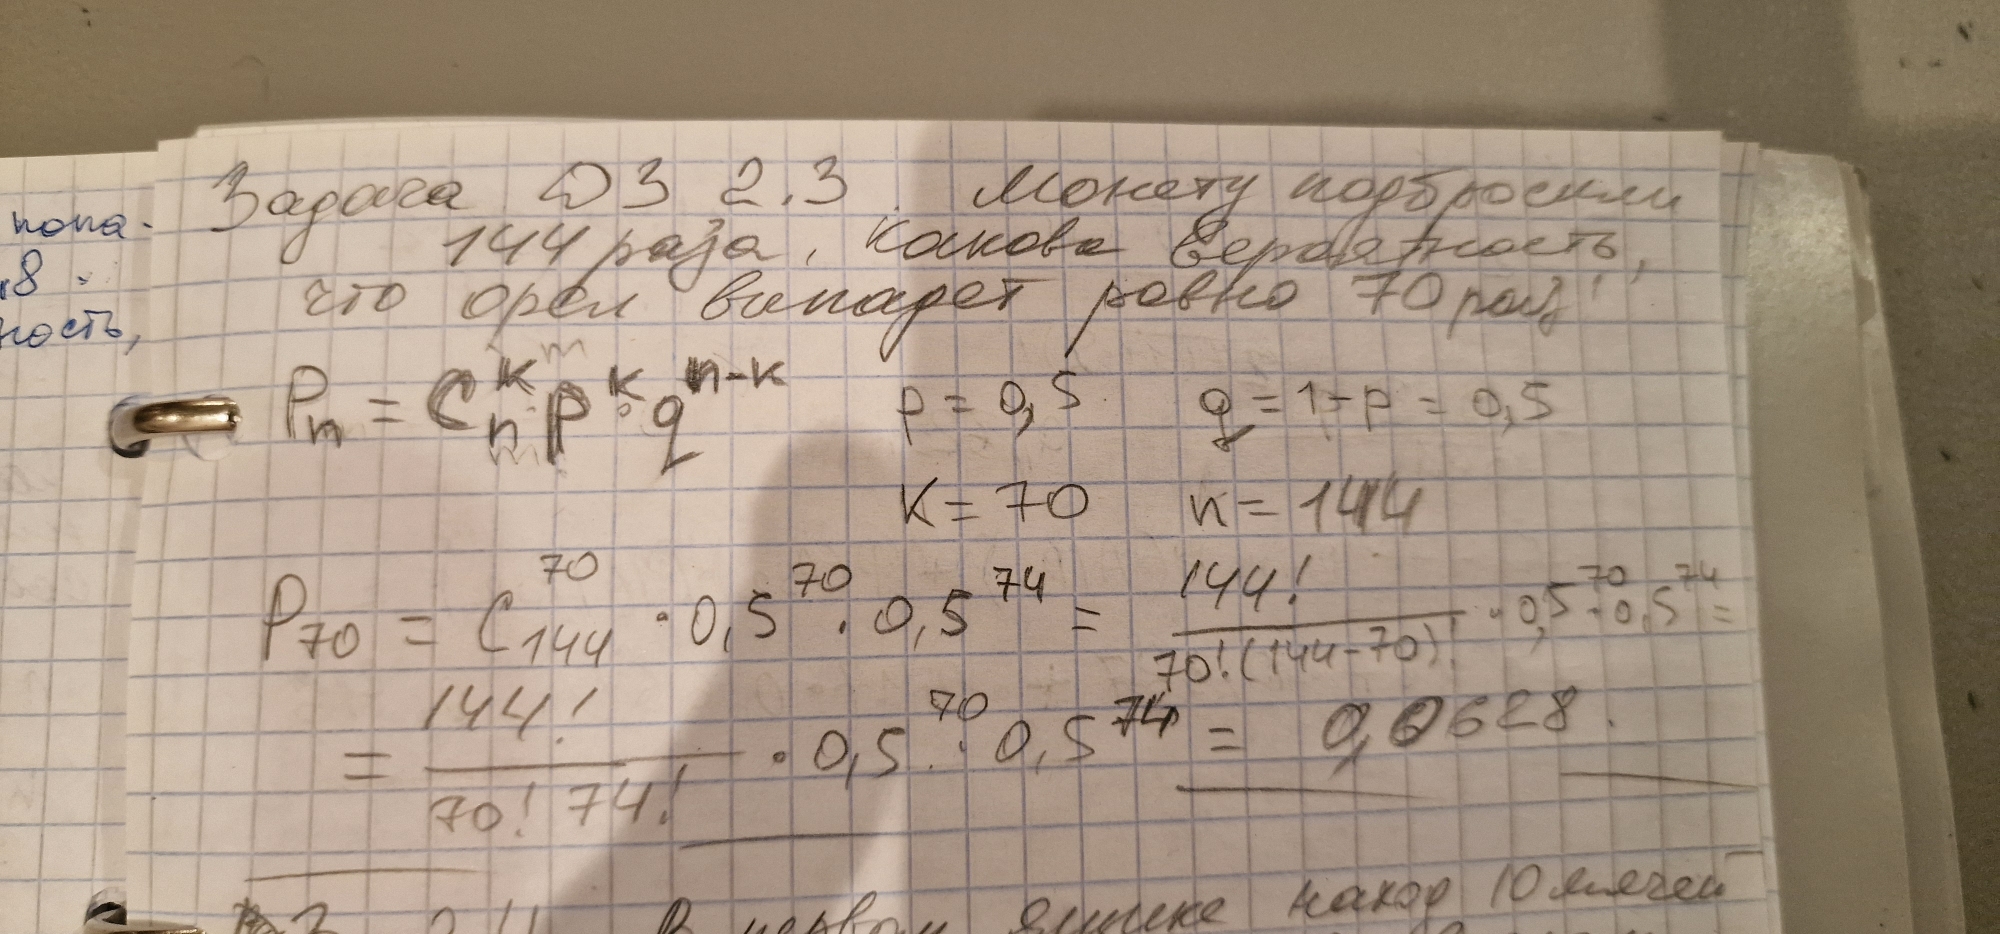 Задача ДЗ 2.3. Монету подбросили
144 раза, какова вероятность,
что орел выпадет ровно 70 раз?
Pₙ = Cₙᵏ p^k · q^(n-k) p = 0,5 q = 1-p = 0,5
K = 70 n = 144
P₇₀ = C₁₄₄⁷⁰ · 0,5⁷⁰ · 0,5⁷⁴ = 144! / 70!(144-70)! · 0,5⁷⁰ · 0,5⁷⁴ =
= 144! / 70! 74! · 0,5⁷⁰ · 0,5⁷⁴ = 0,0628.
ДЗ 2.4. В первом ящике наход 10 мячей
попа-
,8
ность,